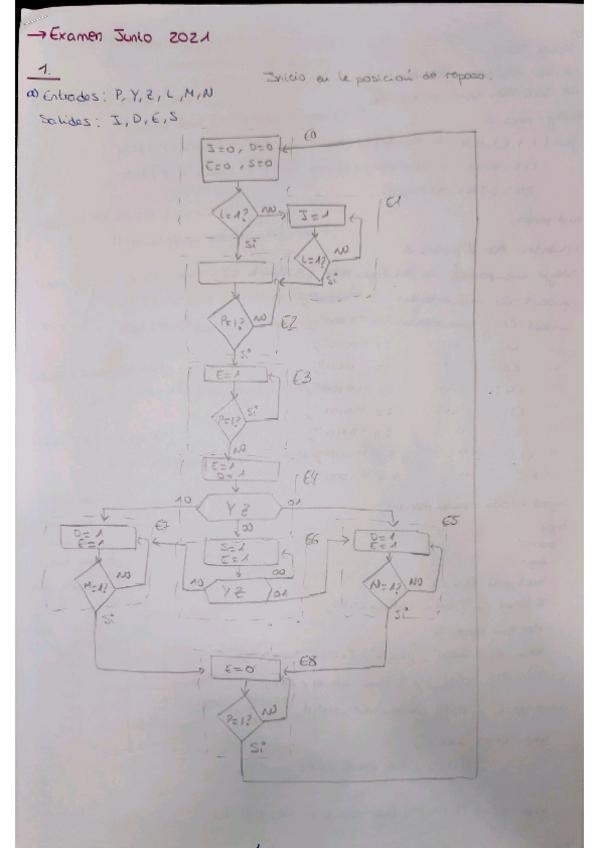 → Examen Junio 2021
1.
Inicio en la posición de reposo.
a) Entradas: P, Y, Z, L, M, N
Salidas: I, D, E, S
E0
I=0, D=0
E=0, S=0
L=1?
NO
I=1
E1
Si
L=1?
NO
Si
P=1?
NO
E2
Si
E=1
E3
P=1?
Si
NO
E=1
D=1
E4
10
YZ
01
00
D=1
E=1
E7
S=1
E=1
E6
D=1
E=1
E5
00
M=1?
NO
10
YZ
01
N=1?
NO
Si
Si
E=0
E8
P=1?
NO
Si